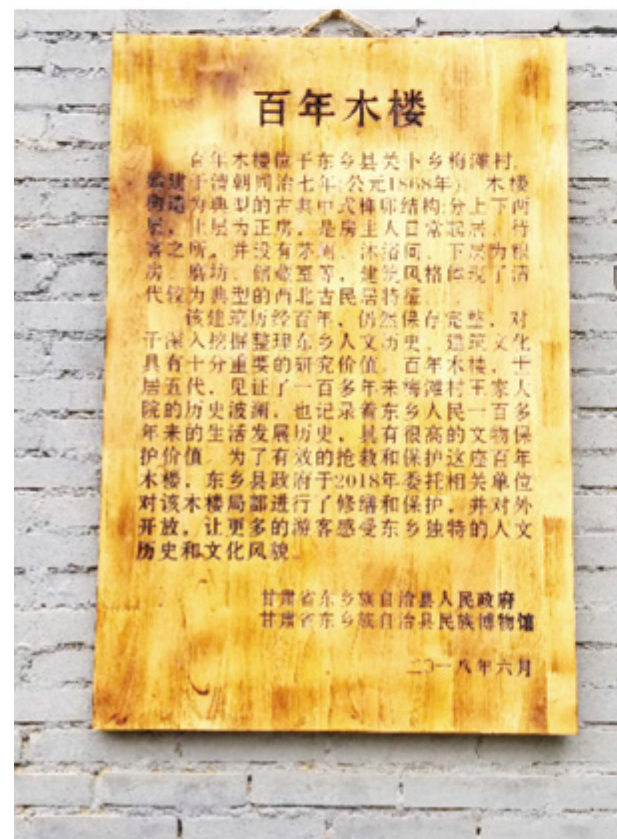 百年木楼
百年木楼位于东乡县关卜乡梅滩村,
始建于清朝同治七年(公元1868年)。木楼
构造为典型的古典中式榫卯结构,分上下两
层,上层为正房,是房主人日常起居、待
客之所,并设有茅厕、沐浴间、下层为粮
房、磨坊、储藏室等,建筑风格体现了清
代较为典型的西北古民居特征。
该建筑历经百年,仍然保存完整,对
于深入挖掘整理东乡人文历史、建筑文化
具有十分重要的研究价值。百年木楼,
居五代,见证了一百多年来梅滩村王家大
院的历史波澜,也记录着东乡人民一百多
年来的生活发展历史,具有很高的文物保
护价值。为了有效的抢救和保护这座百年
木楼,东乡县政府于2018年委托相关单位
对该木楼局部进行了修缮和保护,并对外
开放,让更多的游客感受东乡独特的人文
历史和文化风貌。
甘肃省东乡族自治县人民政府
甘肃省东乡族自治县民族博物馆
二〇一八年六月